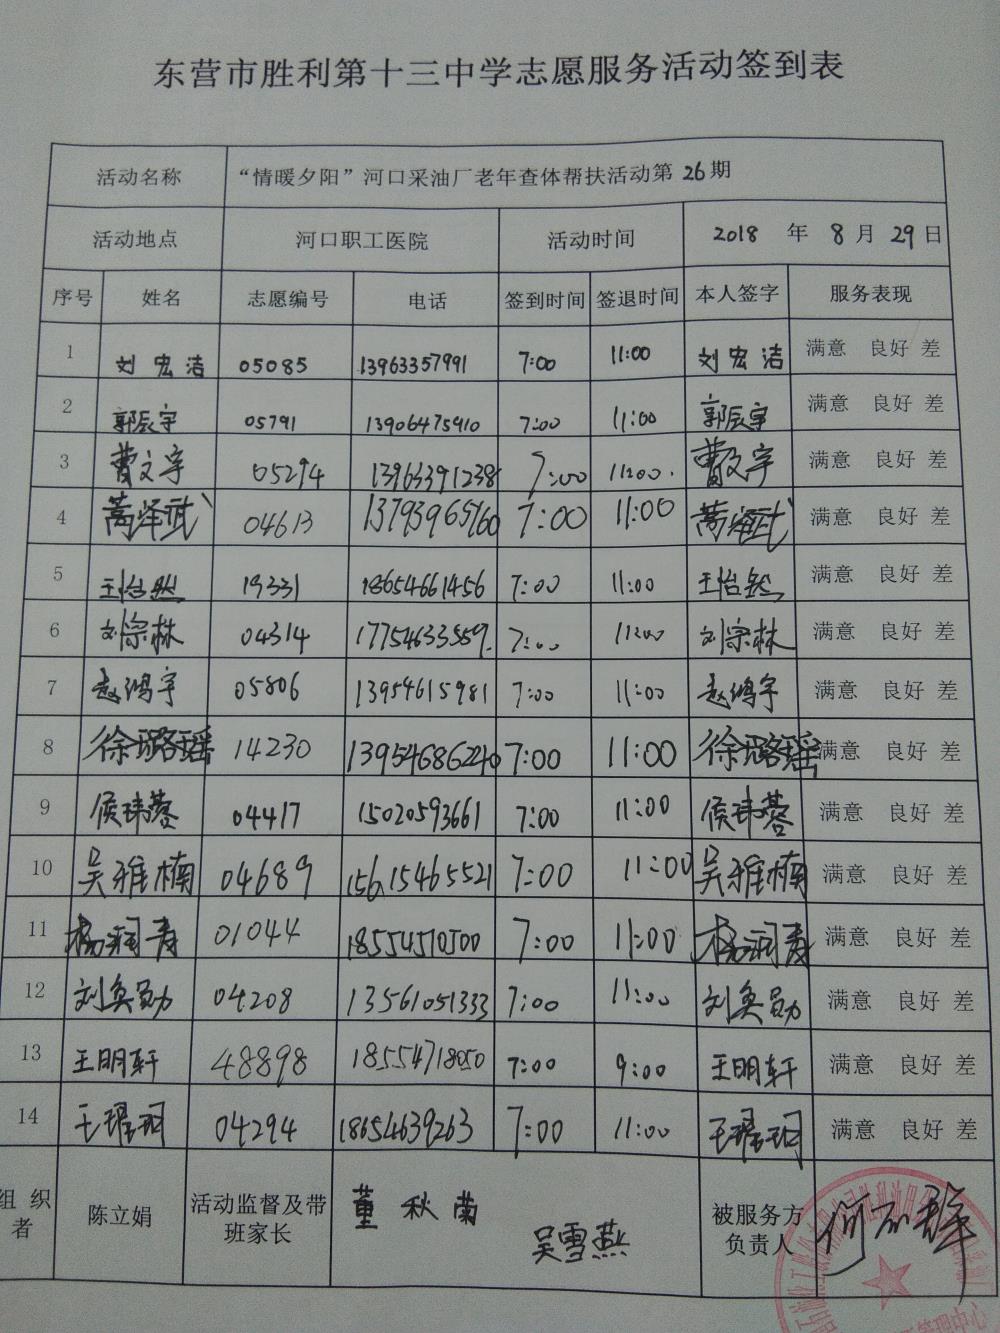 东营市胜利第十三中学志愿服务活动签到表
活动名称 “情暖夕阳”河口采油厂老年查体帮扶活动第 26 期
活动地点 河口职工医院 活动时间 2018 年 8 月 29 日
序号 姓名 志愿编号 电话 签到时间 签退时间 本人签字 服务表现
1 刘宏洁 05085 13963357991 7:00 11:00 刘宏洁 满意 良好 差
2 郭辰宇 05791 13906475910 7:00 11:00 郭辰宇 满意 良好 差
3 曹文宇 05294 13963391238 7:00 11:00 曹文宇 满意 良好 差
4 蒿泽武 04613 13793965760 7:00 11:00 蒿泽武 满意 良好 差
5 王怡然 19331 18654661456 7:00 11:00 王怡然 满意 良好 差
6 刘宗林 04314 17754633559 7:00 11:00 刘宗林 满意 良好 差
7 赵鸿宇 05806 13954615981 7:00 11:00 赵鸿宇 满意 良好 差
8 徐璐瑶 14230 13954686240 7:00 11:00 徐璐瑶 满意 良好 差
9 侯玮蓉 04417 15020593661 7:00 11:00 侯玮蓉 满意 良好 差
10 吴雅楠 04689 15615465521 7:00 11:00 吴雅楠 满意 良好 差
11 杨润青 01044 18554510500 7:00 11:00 杨润青 满意 良好 差
12 刘奂勋 04208 13561051333 7:00 11:00 刘奂勋 满意 良好 差
13 王明轩 48898 18554718050 7:00 9:00 王明轩 满意 良好 差
14 王珺玥 04294 18654639263 7:00 11:00 王珺玥 满意 良好 差
组织者 陈立娟 活动监督及带班家长 董秋菊 吴雪燕 被服务方负责人